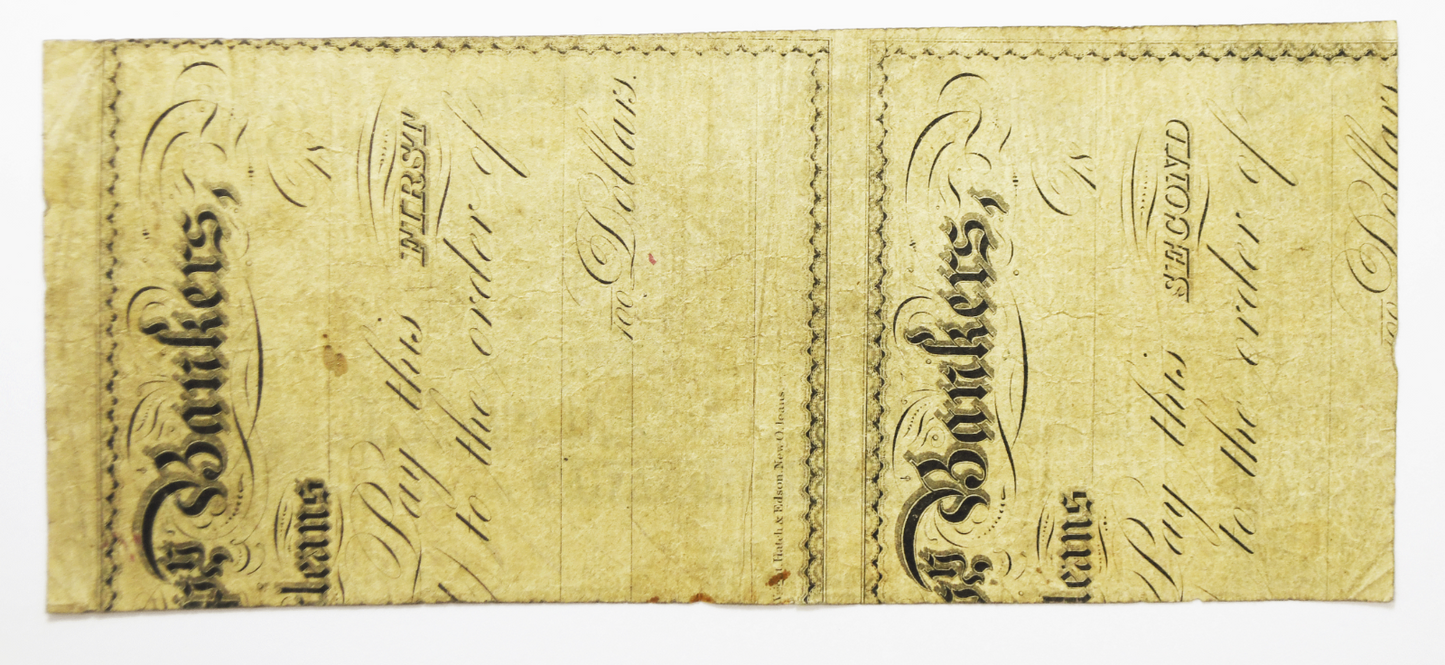 Bankers,
leans Ds
Pay this FIRST
to the order of
100 Dollars.
Hatch & Edson. New Orleans
Bankers,
leans Ds
Pay this SECOND
to the order of
100 Dollars